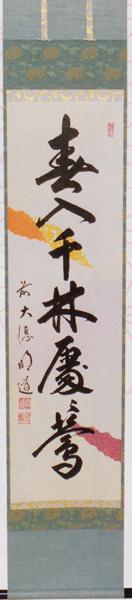 春入千林處〻鶯
前大徳明道